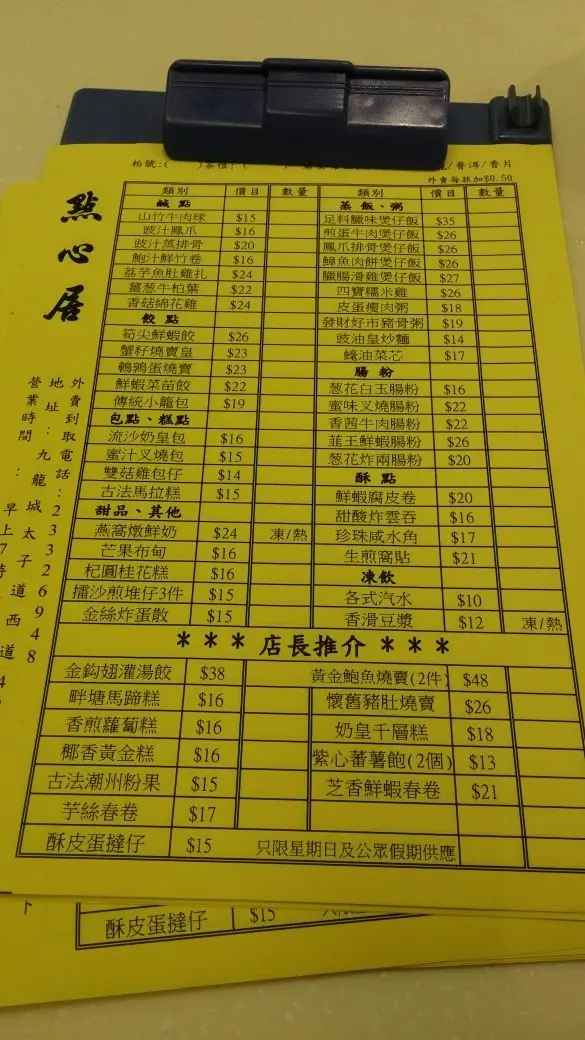 枱號:( )茶種:( ) /普洱/香片
外賣每款加$0.50
點心居
外賣到取電話:23326948
地址:九龍城太子道西
營業時間:早上7時
類別 價目 數量 類別 價目 數量
鹹點
山竹牛肉球 $15
豉汁鳳爪 $16
豉汁蒸排骨 $20
鮑汁鮮竹卷 $16
荔芋魚肚雞扎 $24
薑葱牛柏葉 $22
香菇綿花雞 $24
餃點
筍尖鮮蝦餃 $26
蟹籽燒賣皇 $23
鵪鶉蛋燒賣 $23
鮮蝦菜苗餃 $22
傳統小籠包 $19
包點、糕點
流沙奶皇包 $16
蜜汁叉燒包 $15
雙菇雞包仔 $14
古法馬拉糕 $15
甜品、其他
燕窩燉鮮奶 $24 凍/熱
芒果布甸 $16
杞圓桂花糕 $16
擂沙煎堆仔3件 $15
金絲炸蛋散 $15
蒸飯、粥
足料臘味煲仔飯 $35
煎蛋牛肉煲仔飯 $26
鳳爪排骨煲仔飯 $26
鱆魚肉餅煲仔飯 $26
臘腸滑雞煲仔飯 $27
四寶糯米雞 $26
皮蛋瘦肉粥 $18
發財好市豬骨粥 $19
豉油皇炒麵 $14
蠔油菜芯 $17
腸粉
葱花白玉腸粉 $16
蜜味叉燒腸粉 $22
香茜牛肉腸粉 $22
韮王鮮蝦腸粉 $26
葱花炸兩腸粉 $20
酥點
鮮蝦腐皮卷 $20
甜酸炸雲吞 $16
珍珠咸水角 $17
生煎窩貼 $21
凍飲
各式汽水 $10
香滑豆漿 $12 凍/熱
*** 店長推介 ***
金鈎翅灌湯餃 $38
畔塘馬蹄糕 $16
香煎蘿蔔糕 $16
椰香黃金糕 $16
古法潮州粉果 $15
芋絲春卷 $17
黃金鮑魚燒賣(2件) $48
懷舊豬肚燒賣 $26
奶皇千層糕 $18
紫心蕃薯飽(2個) $13
芝香鮮蝦春卷 $21
酥皮蛋撻仔 $15 只限星期日及公眾假期供應
酥皮蛋撻仔 $15